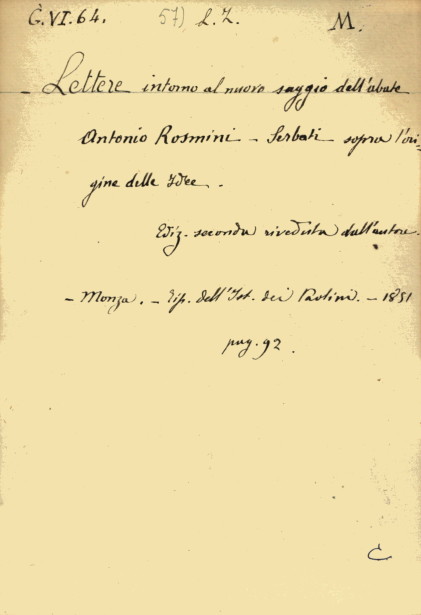 G.VI.64. 57) L.Z. M.
Lettere intorno al nuovo saggio dell'abate
Antonio Rosmini - Serbati sopra l'ori-
gine delle Idee.
Ediz. seconda riveduta dall'autore.
- Monza. - Tip. dell'Ist. dei Paolini. - 1851
pag. 92.
C